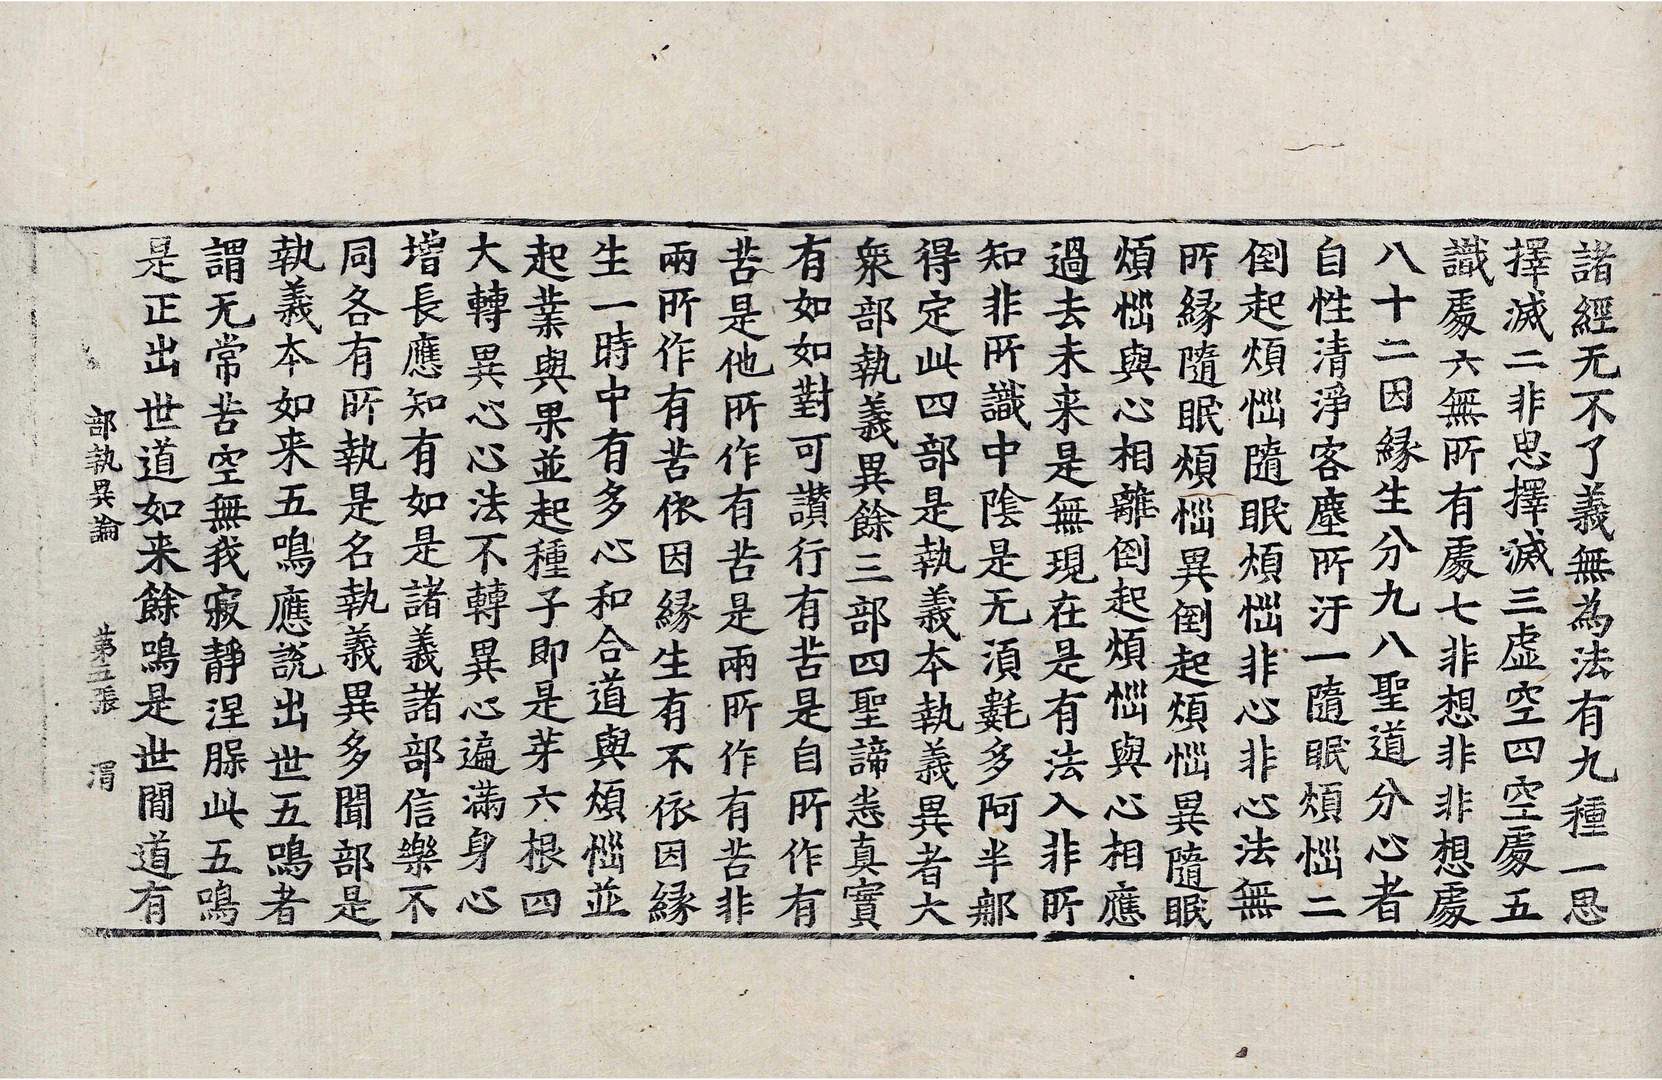 諸經无不了義無為法有九種一思
擇滅二非思擇滅三虛空四空處五
識處六無所有處七非想非非想處
八十二因緣生分九八聖道分心者
自性清淨客塵所汙一隨眠煩惱二
倒起煩惱隨眠煩惱非心非心法無
所緣隨眠煩惱異倒起煩惱異隨眠
煩惱與心相離倒起煩惱與心相應
過去未来是無現在是有法入非所
知非所識中陰是无湏㲉多阿半那
得定此四部是執義本執義異者大
衆部執義異餘三部四聖諦悉真實
有如如對可讚行有苦是自所作有
苦是他所作有苦是兩所作有苦非
兩所作有苦依因緣生有不依因緣
生一時中有多心和合道與煩惱並
起業與果並起種子即是芽六根四
大轉異心心法不轉異心遍滿身心
增長應知有如是諸義諸部信樂不
同各有所執是名執義異多聞部是
執義本如来五鳴應說出世五鳴者
謂无常苦空無我寂靜涅槃此五鳴
是正出世道如来餘鳴是世間道有
部執異論 第五張 渭